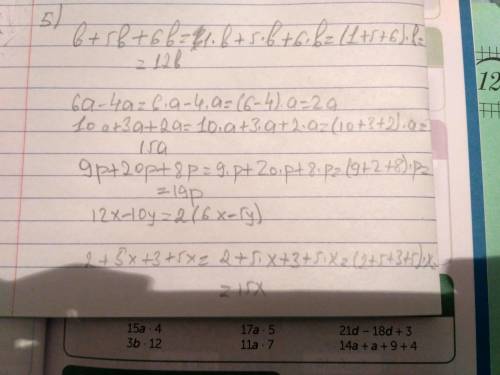 5)
b+5b+6b=1·b+5·b+6·b=(1+5+6)·b=
=12b
6a-4a=6·a-4·a=(6-4)·a=2a
10a+3a+2a=10·a+3·a+2·a=(10+3+2)·a=
15a
9p+20p+8p=9·p+20·p+8·p=(9+2+8)·p=
=19p
12x-10y=2(6x-5y)
2+5x+3+5x=2+5·x+3+5·x=(2+5+3+5)·x=
=15x
12
15a · 4 17a · 5 21d − 18d + 3
3b · 12 11a · 7 14a + a + 9 + 4